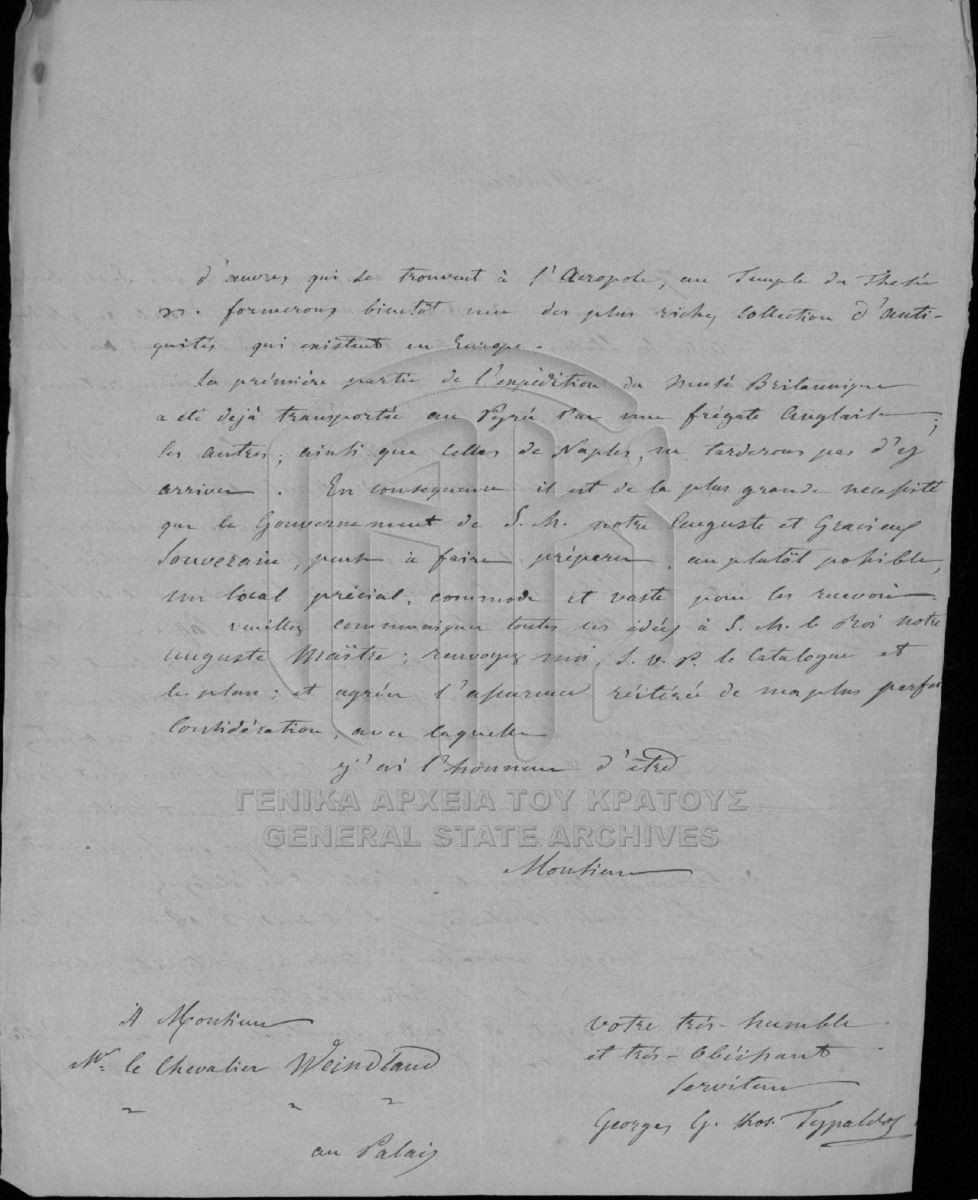 d'œuvres qui se trouvent à l'Acropole, au Temple du Thesée
x. formerons bientôt une des plus riches Collection d'anti-
quités qui existent en Europe.
La prémière partie de l'expédition du Musée Britannique
a été dejà transportée au Pyrée par une frégate Anglaise;
les autres, ainsi que celles de Naples, ne tarderons pas d'y
arriver. En consequence il est de la plus grande necessité
que le Gouvernement de S. M. notre Auguste et Gracieux
Souverain, pense à faire préparer, au plutôt possible,
un local précial, commode et vaste pour les recevoir.
veuillez communiquer toutes ces idées à S. M. le Roi notre
Auguste Maître; renvoyez moi, S. v. P. le Catalogue et
le plan; et agréer l'assurance réitérée de ma plus parfaite
Considération, avec laquelle
j'ai l'honneur d'être
ΓΕΝΙΚΑ ΑΡΧΕΙΑ ΤΟΥ ΚΡΑΤΟΥΣ
GENERAL STATE ARCHIVES
Monsieur
A Monsieur
Mr. le Chevalier Weindland
au Palais
votre trés-humble
et trés-Obéissant
Serviteur
Georges G. Typaldos